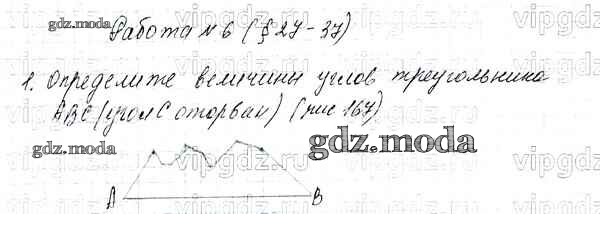 gdz.moda
Работа № 6 (§ 27-37)
vipgdz.ru
1. Определите величины углов треугольника
ABC (угол C оторван) (рис 167)
gdz.moda
gdz.moda
vipgdz.ru
A B